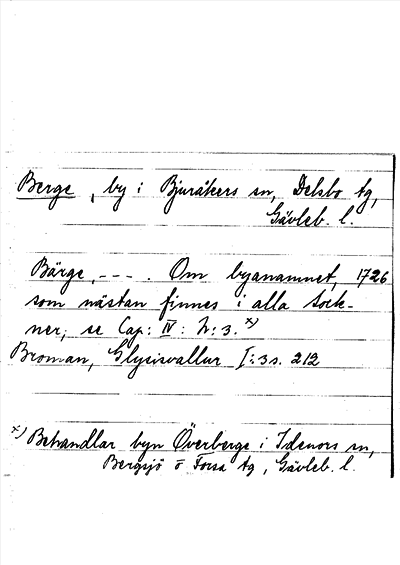 Berge, by i Bjuråkers sn, Delsbo tg,
Gävleb. l.
Bärge, --- . Om byanamnet, 1726
som nästan finnes i alla sock-
ner, se Cap: IV: N: 3. x)
Broman, Glysisvallur I: 3 s. 212
x) Behandlar byn Överberge i Idenors sn,
Bergsjö o Forsa tg, Gävleb. l.